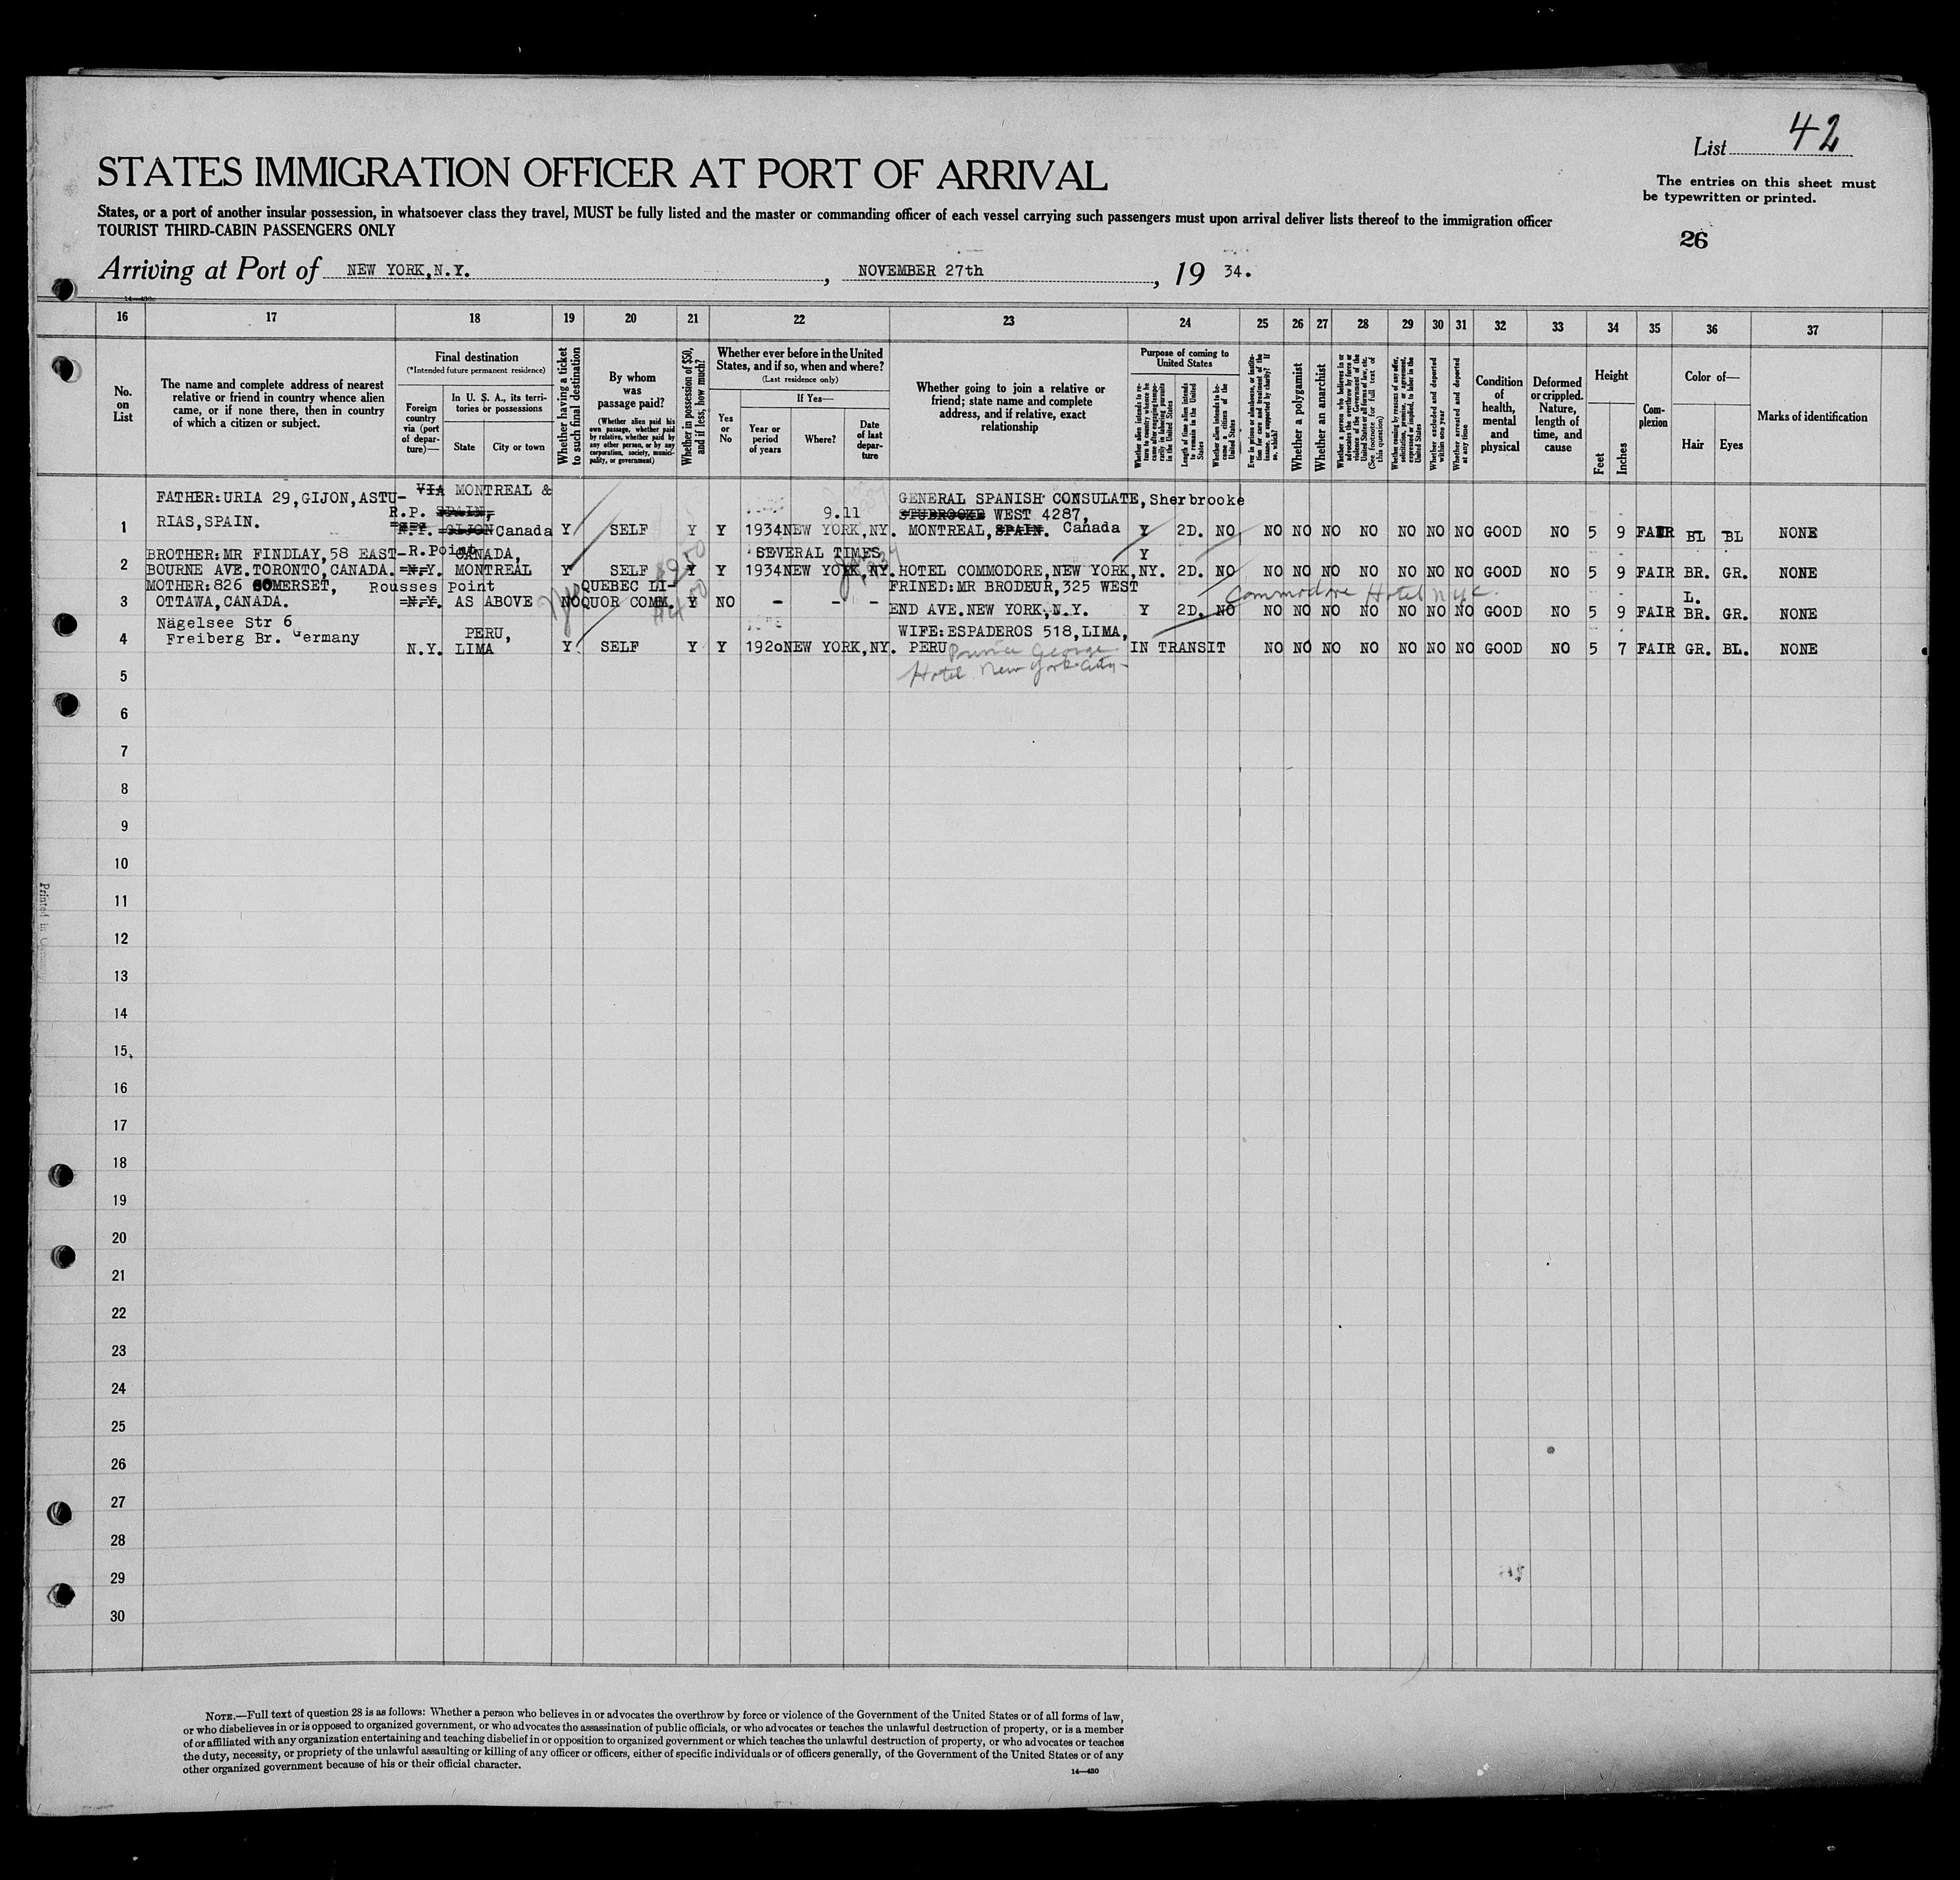 List 42
STATES IMMIGRATION OFFICER AT PORT OF ARRIVAL
The entries on this sheet must
be typewritten or printed.
States, or a port of another insular possession, in whatsoever class they travel, MUST be fully listed and the master or commanding officer of each vessel carrying such passengers must upon arrival deliver lists thereof to the immigration officer
TOURIST THIRD-CABIN PASSENGERS ONLY
26
Arriving at Port of NEW YORK,N.Y., NOVEMBER 27th, 19 34.
14—430
16 17 18 19 20 21 22 23 24 25 26 27 28 29 30 31 32 33 34 35 36 37
No.
on
List
The name and complete address of nearest
relative or friend in country whence alien
came, or if none there, then in country
of which a citizen or subject.
Final destination
(*Intended future permanent residence)
Foreign
country
via (port
of depar-
ture)—
In U. S. A., its terri-
tories or possessions
State City or town
Whether having a ticket
to such final destination
By whom
was
passage paid?
(Whether alien paid his
own passage, whether paid
by relative, whether paid by
any other person, or by any
corporation, society, munici-
pality, or government)
Whether in possession of $50,
and if less, how much?
Whether ever before in the United
States, and if so, when and where?
(Last residence only)
Yes
or
No
If Yes—
Year or
period
of years
Where?
Date
of last
depar-
ture
Whether going to join a relative or
friend; state name and complete
address, and if relative, exact
relationship
Purpose of coming to
United States
Whether alien intends to re-
turn to country whence he
came after engaging tempo-
rarily in laboring pursuits
in the United States
Length of time alien intends
to remain in the United
States
Whether alien intends to be-
come a citizen of the
United States
Ever in prison or almshouse, or institu-
tion for care and treatment of the
insane, or supported by charity? If
so, which?
Whether a polygamist
Whether an anarchist
Whether a person who believes in or
advocates the overthrow by force or
violence of the Government of the
United States or all forms of law, etc.
(See footnote for full text of
this question)
Whether coming by reason of any offer,
solicitation, promise, or agreement,
expressed or implied, to labor in the
United States
Whether excluded and deported
within one year
Whether arrested and deported
at any time
Condition
of
health,
mental
and
physical
Deformed
or crippled.
Nature,
length of
time, and
cause
Height
Feet Inches
Com-
plexion
Color of—
Hair Eyes
Marks of identification
FATHER:URIA 29,GIJON,ASTU- VIA MONTREAL & GENERAL SPANISH CONSULATE,Sherbrooke
R.P. SPAIN, 9.11 STUBROOKE WEST 4287,
1 RIAS,SPAIN. N.Y. GIJON Canada Y SELF Y Y 1934 NEW YORK,NY. MONTREAL,SPAIN. Canada Y 2D. NO NO NO NO NO NO NO NO GOOD NO 5 9 FAIR BL BL NONE
BROTHER:MR FINDLAY,58 EAST- R.Point CANADA, SEVERAL TIMES Y
2 BOURNE AVE.TORONTO,CANADA. N.Y. MONTREAL Y SELF Y Y 1934 NEW YORK,NY. HOTEL COMMODORE,NEW YORK,NY. 2D. NO NO NO NO NO NO NO NO GOOD NO 5 9 FAIR BR. GR. NONE
MOTHER:826 SOMERSET, Rousses Point QUEBEC LI- FRINED:MR BRODEUR,325 WEST Commodore Hotel N.Y.C. L.
3 OTTAWA,CANADA. N.Y. AS ABOVE NO QUOR COMM. Y NO - - - END AVE.NEW YORK,N.Y. Y 2D. NO NO NO NO NO NO NO NO GOOD NO 5 9 FAIR BR. GR. NONE
Nägelsee Str 6 PERU, WIFE:ESPADEROS 518,LIMA,
4 Freiberg Br. Germany N.Y. LIMA Y SELF Y Y 1920 NEW YORK,NY. PERU Prince George IN TRANSIT NO NO NO NO NO NO NO GOOD NO 5 7 FAIR GR. BL. NONE
Hotel New York City
5
6
7
8
9
10
11
12
13
14
15
16
17
18
19
20
21
22
23
24
25
26
27
28
29
30
Printed in
NOTE.—Full text of question 28 is as follows: Whether a person who believes in or advocates the overthrow by force or violence of the Government of the United States or of all forms of law,
or who disbelieves in or is opposed to organized government, or who advocates the assassination of public officials, or who advocates or teaches the unlawful destruction of property, or is a member
of or affiliated with any organization entertaining and teaching disbelief in or opposition to organized government or which teaches the unlawful destruction of property, or who advocates or teaches
the duty, necessity, or propriety of the unlawful assaulting or killing of any officer or officers, either of specific individuals or of officers generally, of the Government of the United States or of any
other organized government because of his or their official character.
14—430